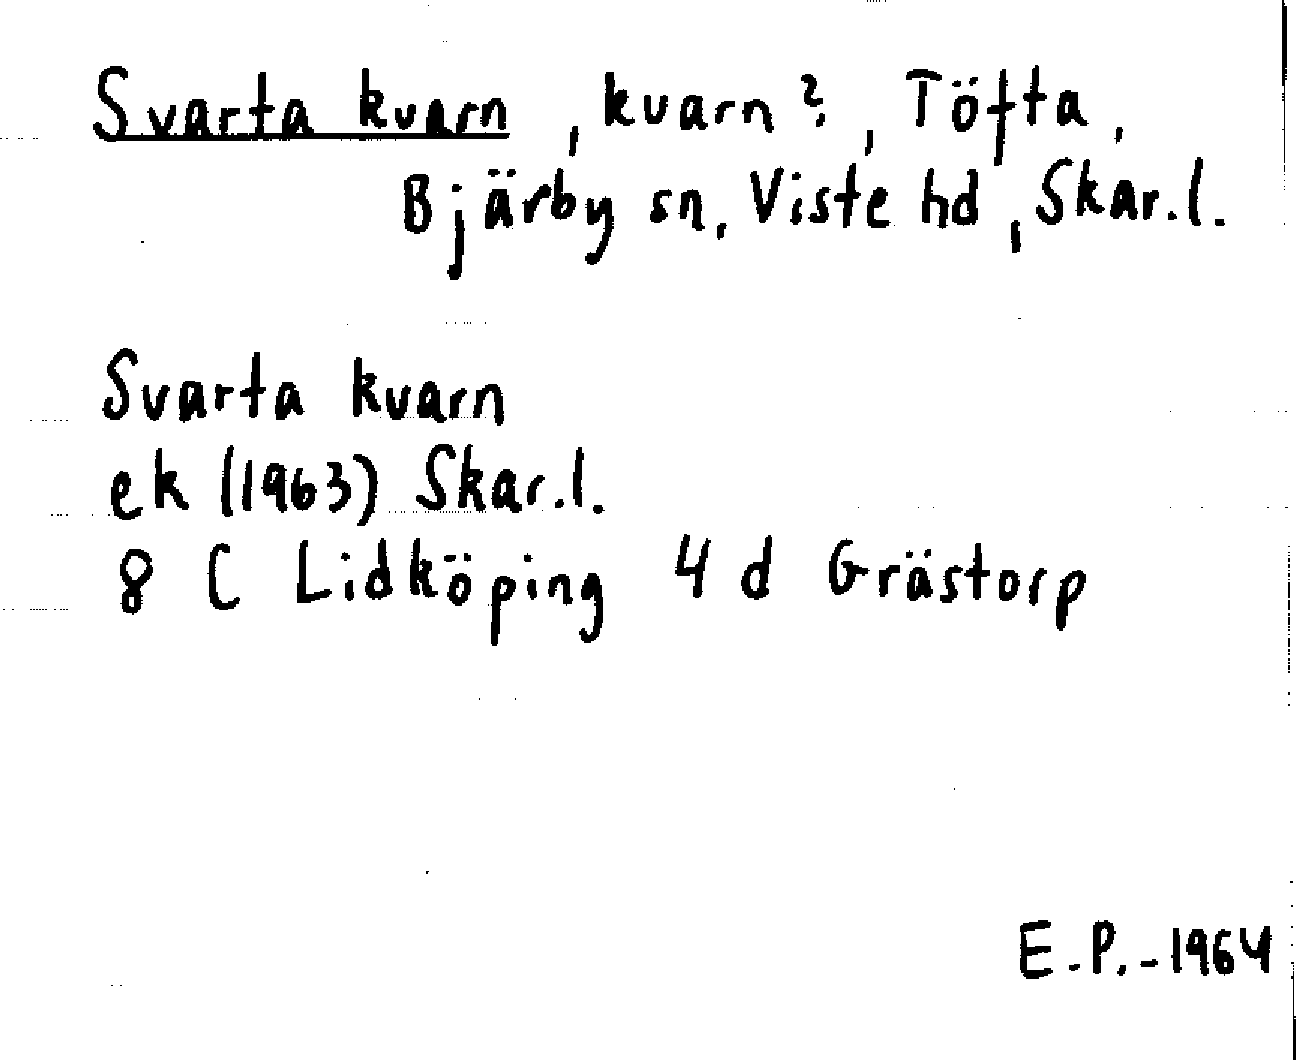 Svarta kvarn, kvarn?, Töfta,
Bjärby sn, Viste hd, Skar.l.
Svarta kvarn
ek (1963) Skar.l.
8 C Lidköping 4 d Grästorp
E.P.-1964